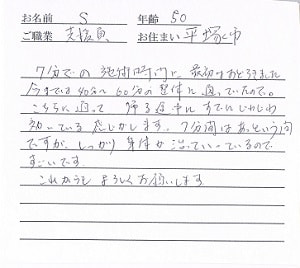 お名前 S 年齢 50
ご職業 支援員 お住まい 平塚市
7分での施術時間に最初はおどろきました
今までは40分〜60分の整体に通っていたので。
こちらに通って 帰る途中にすでにじわじわ
効いている感じがします。7分間はあっという間
ですが、しっかり身体が治っていっているので
すごいです
これからもよろしくお願いします